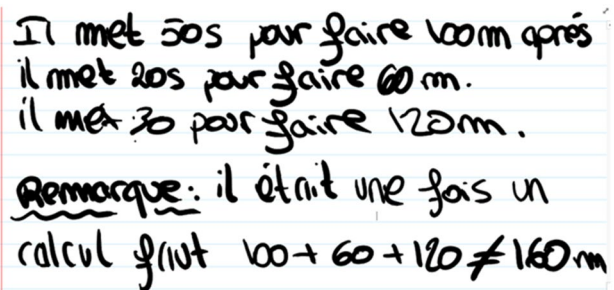 Il met 50s pour faire 100m après
il met 20s pour faire 60m.
il met 30 pour faire 120m.
Remarque: il était une fois un
calcul faut 100+60+120≠160m